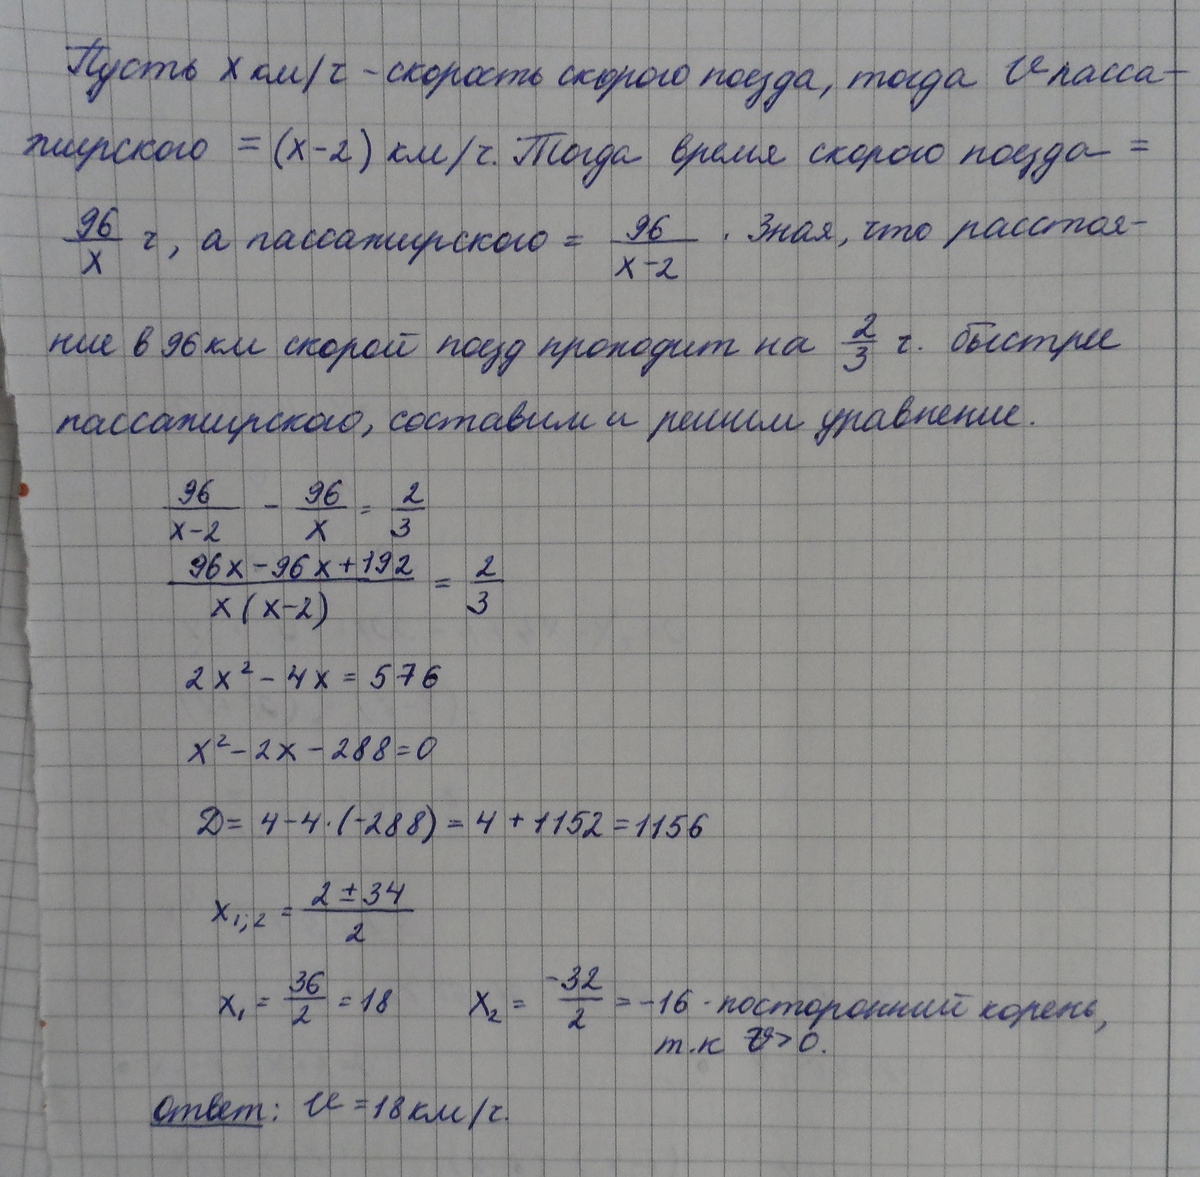 Пусть x км/ч - скорость скорого поезда, тогда V пасса-
жирского = (x-2) км/ч. Тогда время скорого поезда =
96/x ч, а пассажирского = 96/(x-2). Зная, что расстоя-
ние в 96 км скорой поезд проходит на 2/3 ч. быстрее
пассажирского, составим и решим уравнение.
96/(x-2) - 96/x = 2/3
(96x-96x+192)/(x(x-2)) = 2/3
2x²-4x=576
x²-2x-288=0
D= 4-4·(-288)=4+1152=1156
x₁;₂ = (2±34)/2
x₁ = 36/2 = 18 x₂ = -32/2 = -16 - посторонний корень,
т.к V>0.
Ответ: V=18км/ч.